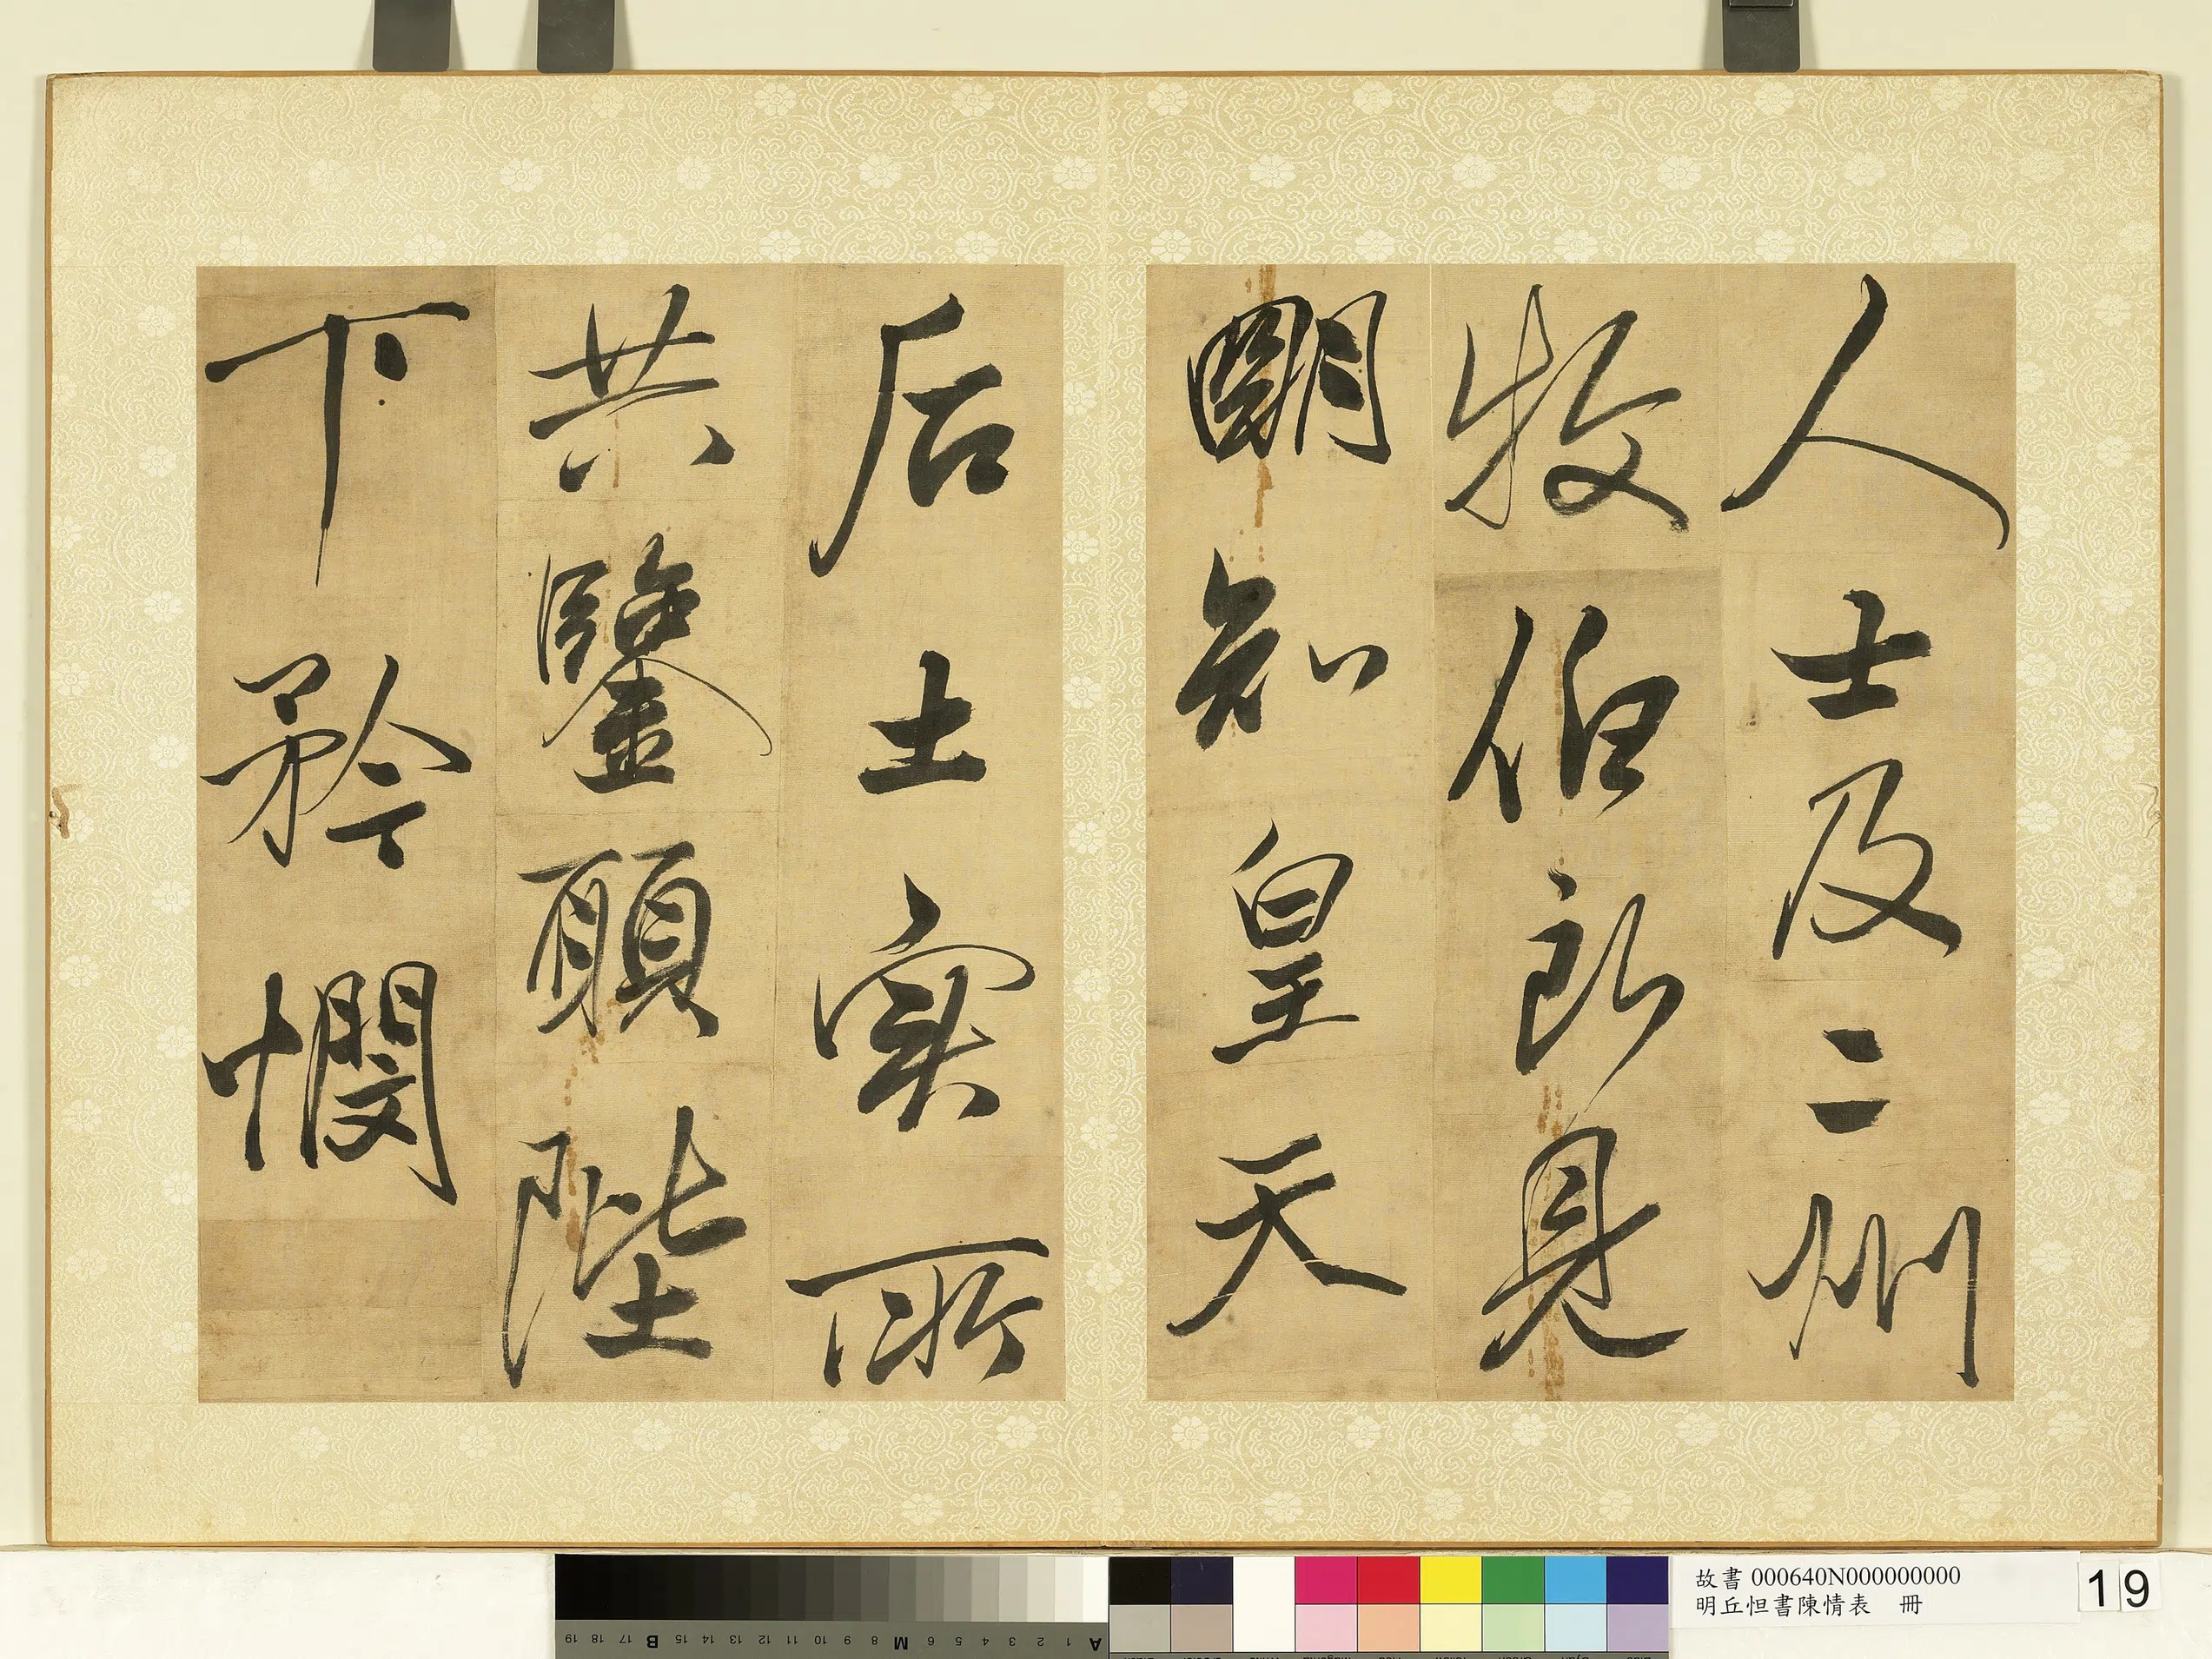 人士及二州
牧伯所見
明知皇天
后土實所
共鑒願陛
下矜憫
故書 000640N000000000
明丘怛書陳情表 冊
19
A 1 2 3 4 5 6 M 8 9 10 11 12 13 14 15 B 17 18 19